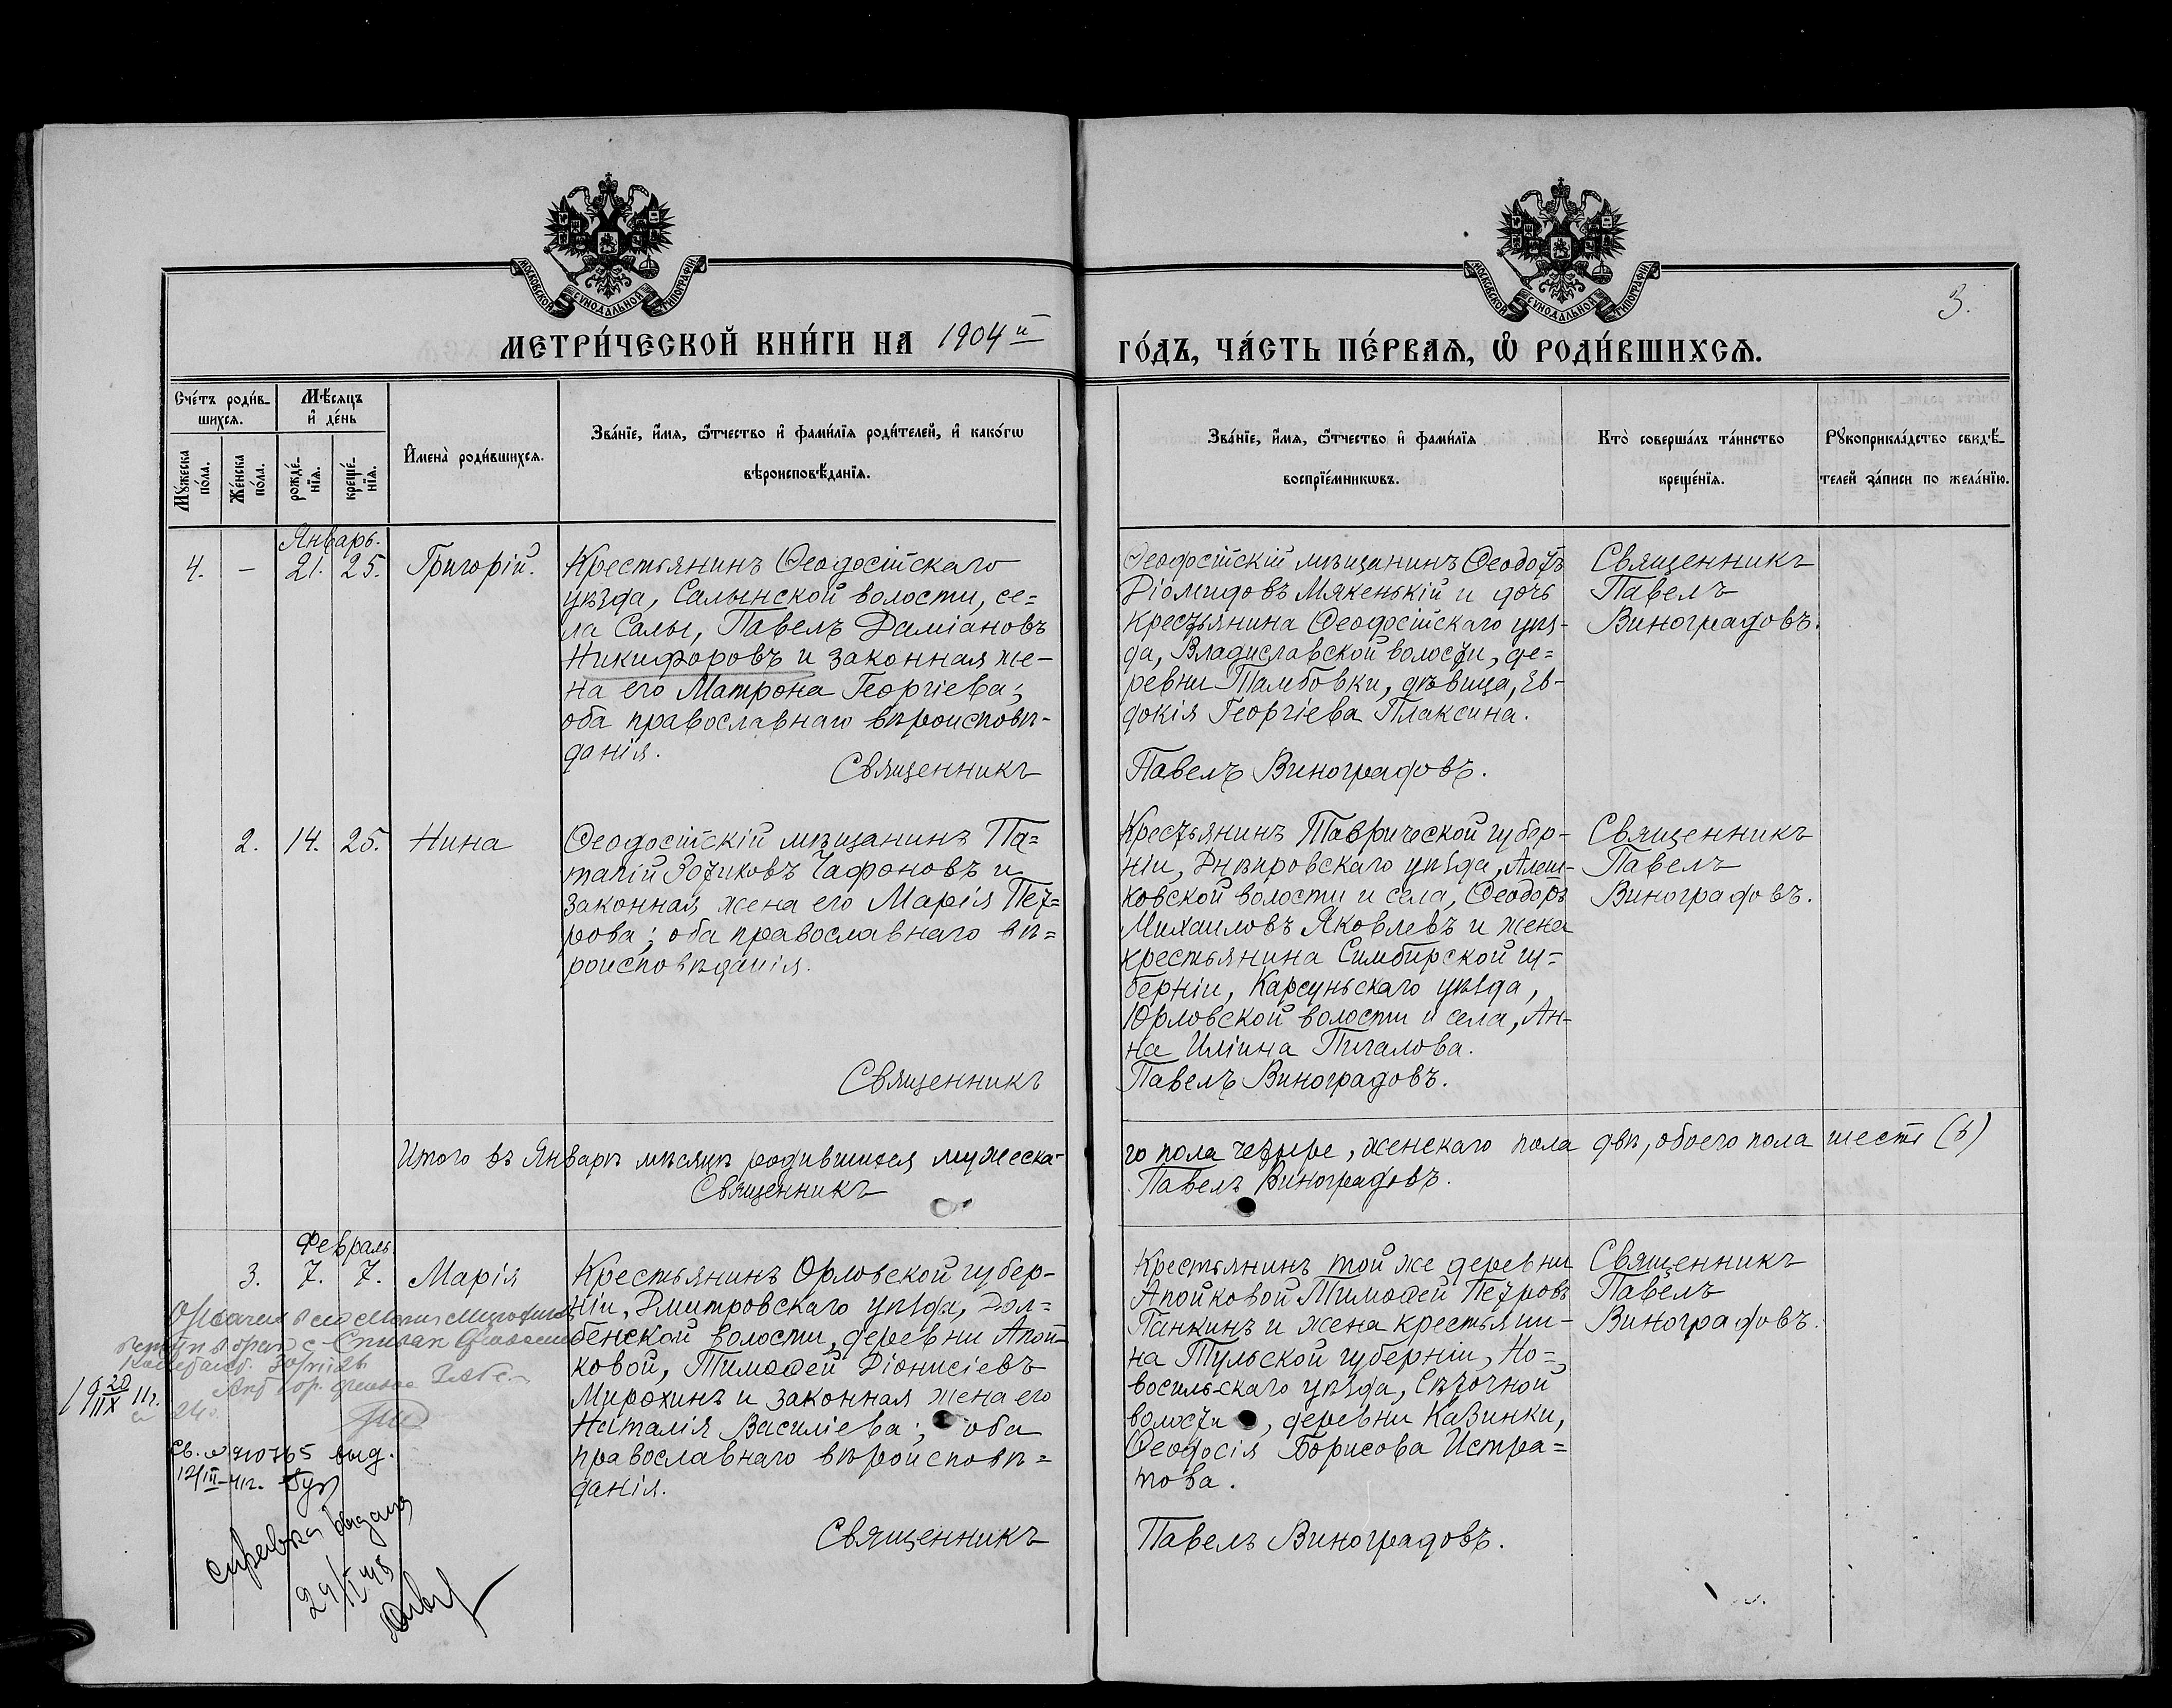 МОСКОВСКОЙ СѴНОДАЛЬНОЙ ТИПОГРАФІИ
МОСКОВСКОЙ СѴНОДАЛЬНОЙ ТИПОГРАФІИ
3.
МЕТРИ́ЧЕСКОЙ КНИ́ГИ НА 1904й
ГО́ДЪ, ЧА́СТЬ ПЕ́РВАѦ, Ѽ РОДИ́ВШИХСѦ.
Сче́тъ роди́вшихсѧ.
Мꙋжеска по́ла.
Же́нска по́ла.
Мѣ́сѧцъ и҆ де́нь
рожде́нїѧ.
креще́нїѧ.
И҆мена̀ роди́вшихсѧ.
Зва́нїе, и҆́мѧ, ѻ҆́тчество и҆ фами́лїѧ роди́телей, и҆ како́гѡ
вѣроисповѣ́данїѧ.
Зва́нїе, и҆́мѧ, ѻ҆́тчество и҆ фами́лїѧ
воспрїе́мникѡвъ.
Кто̀ соверша́лъ та́инство
креще́нїѧ.
Рꙋкоприкла́дство свидѣ́-
телей за́писи по жела́нїю.
Январь.
4. – 21. 25. Григорій.
Крестьянинъ Ѳеодосійскаго
уѣзда, Салынской волости, се=
ла Салы, Павелъ Даміановъ
Никифоровъ и законная же-
на его Матрона Георгіева;
оба православнаго вѣроисповѣ-
данія.
Священникъ
Ѳеодосійскій мѣщанинъ Ѳеодотъ
Діомидовъ Мякенькій и дочь
крестьянина Ѳеодосійскаго уѣз-
да, Владиславской волости, де=
ревни Тамбовки, дѣвица, Ев-
докія Георгіева Плаксина.
Павелъ Виноградовъ.
Священникъ
Павелъ
Виноградовъ.
2. 14. 25. Нина
Ѳеодосійскій мѣщанинъ Па=
тапій Зотиковъ Чафоновъ и
законная жена его Марія Пет=
рова; оба православнаго вѣ=
роисповѣданія.
Священникъ
Крестьянинъ Таврической губер-
ніи, Днѣпровскаго уѣзда, Алеш-
ковской волости и села, Ѳеодоръ
Михаиловъ Яковлевъ и жена
крестьянина Симбирской гу=
берніи, Карсуньскаго уѣзда,
Юрловской волости и села, Ан-
на Иліина Пигалова.
Павелъ Виноградовъ.
Священникъ
Павелъ
Виноградовъ.
Итого въ Январѣ мѣсяцѣ родившихся мужеска-
Священникъ
го пола четыре, женскаго пола двѣ, обоего пола шесть (6)
Павелъ Виноградовъ.
Февраль
3. 7. 7. Марія
Крестьянинъ Орловской губер-
ніи, Дмитровскаго уѣзда, Дол=
бенской волости, деревни Апой-
ковой, Тимоѳей Діонисіевъ
Мирохинъ и законная жена его
Наталія Василіева; оба
православнаго вѣроисповѣ=
данія.
Священникъ
Крестьянинъ той же деревни
Апойковой Тимоѳей Петровъ
Панкинъ и жена крестьяни-
на Тульской губерніи, Но=
восильскаго уѣзда, Сѣточной
волости, деревни Казинки,
Ѳеодосія Борисова Истра=
това.
Павелъ Виноградовъ.
Священникъ
Павелъ
Виноградовъ.
выд.
12/III-41г.
справка выдана